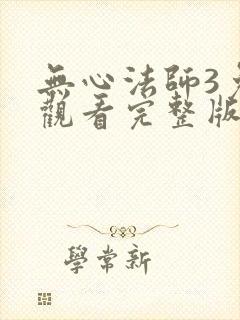 無心法師3
觀看完整版
學常新